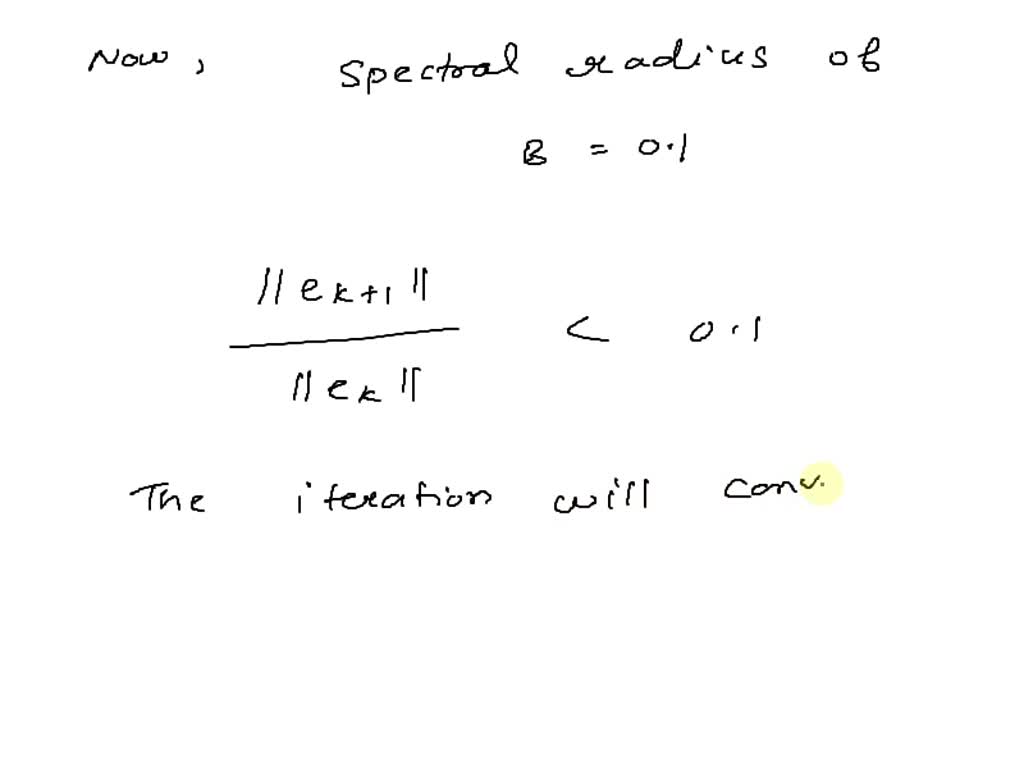 Now, Spectral radius of
B = 0.1
||e_{k+1}||
———— < 0.1
||e_k||
The iteration will conv